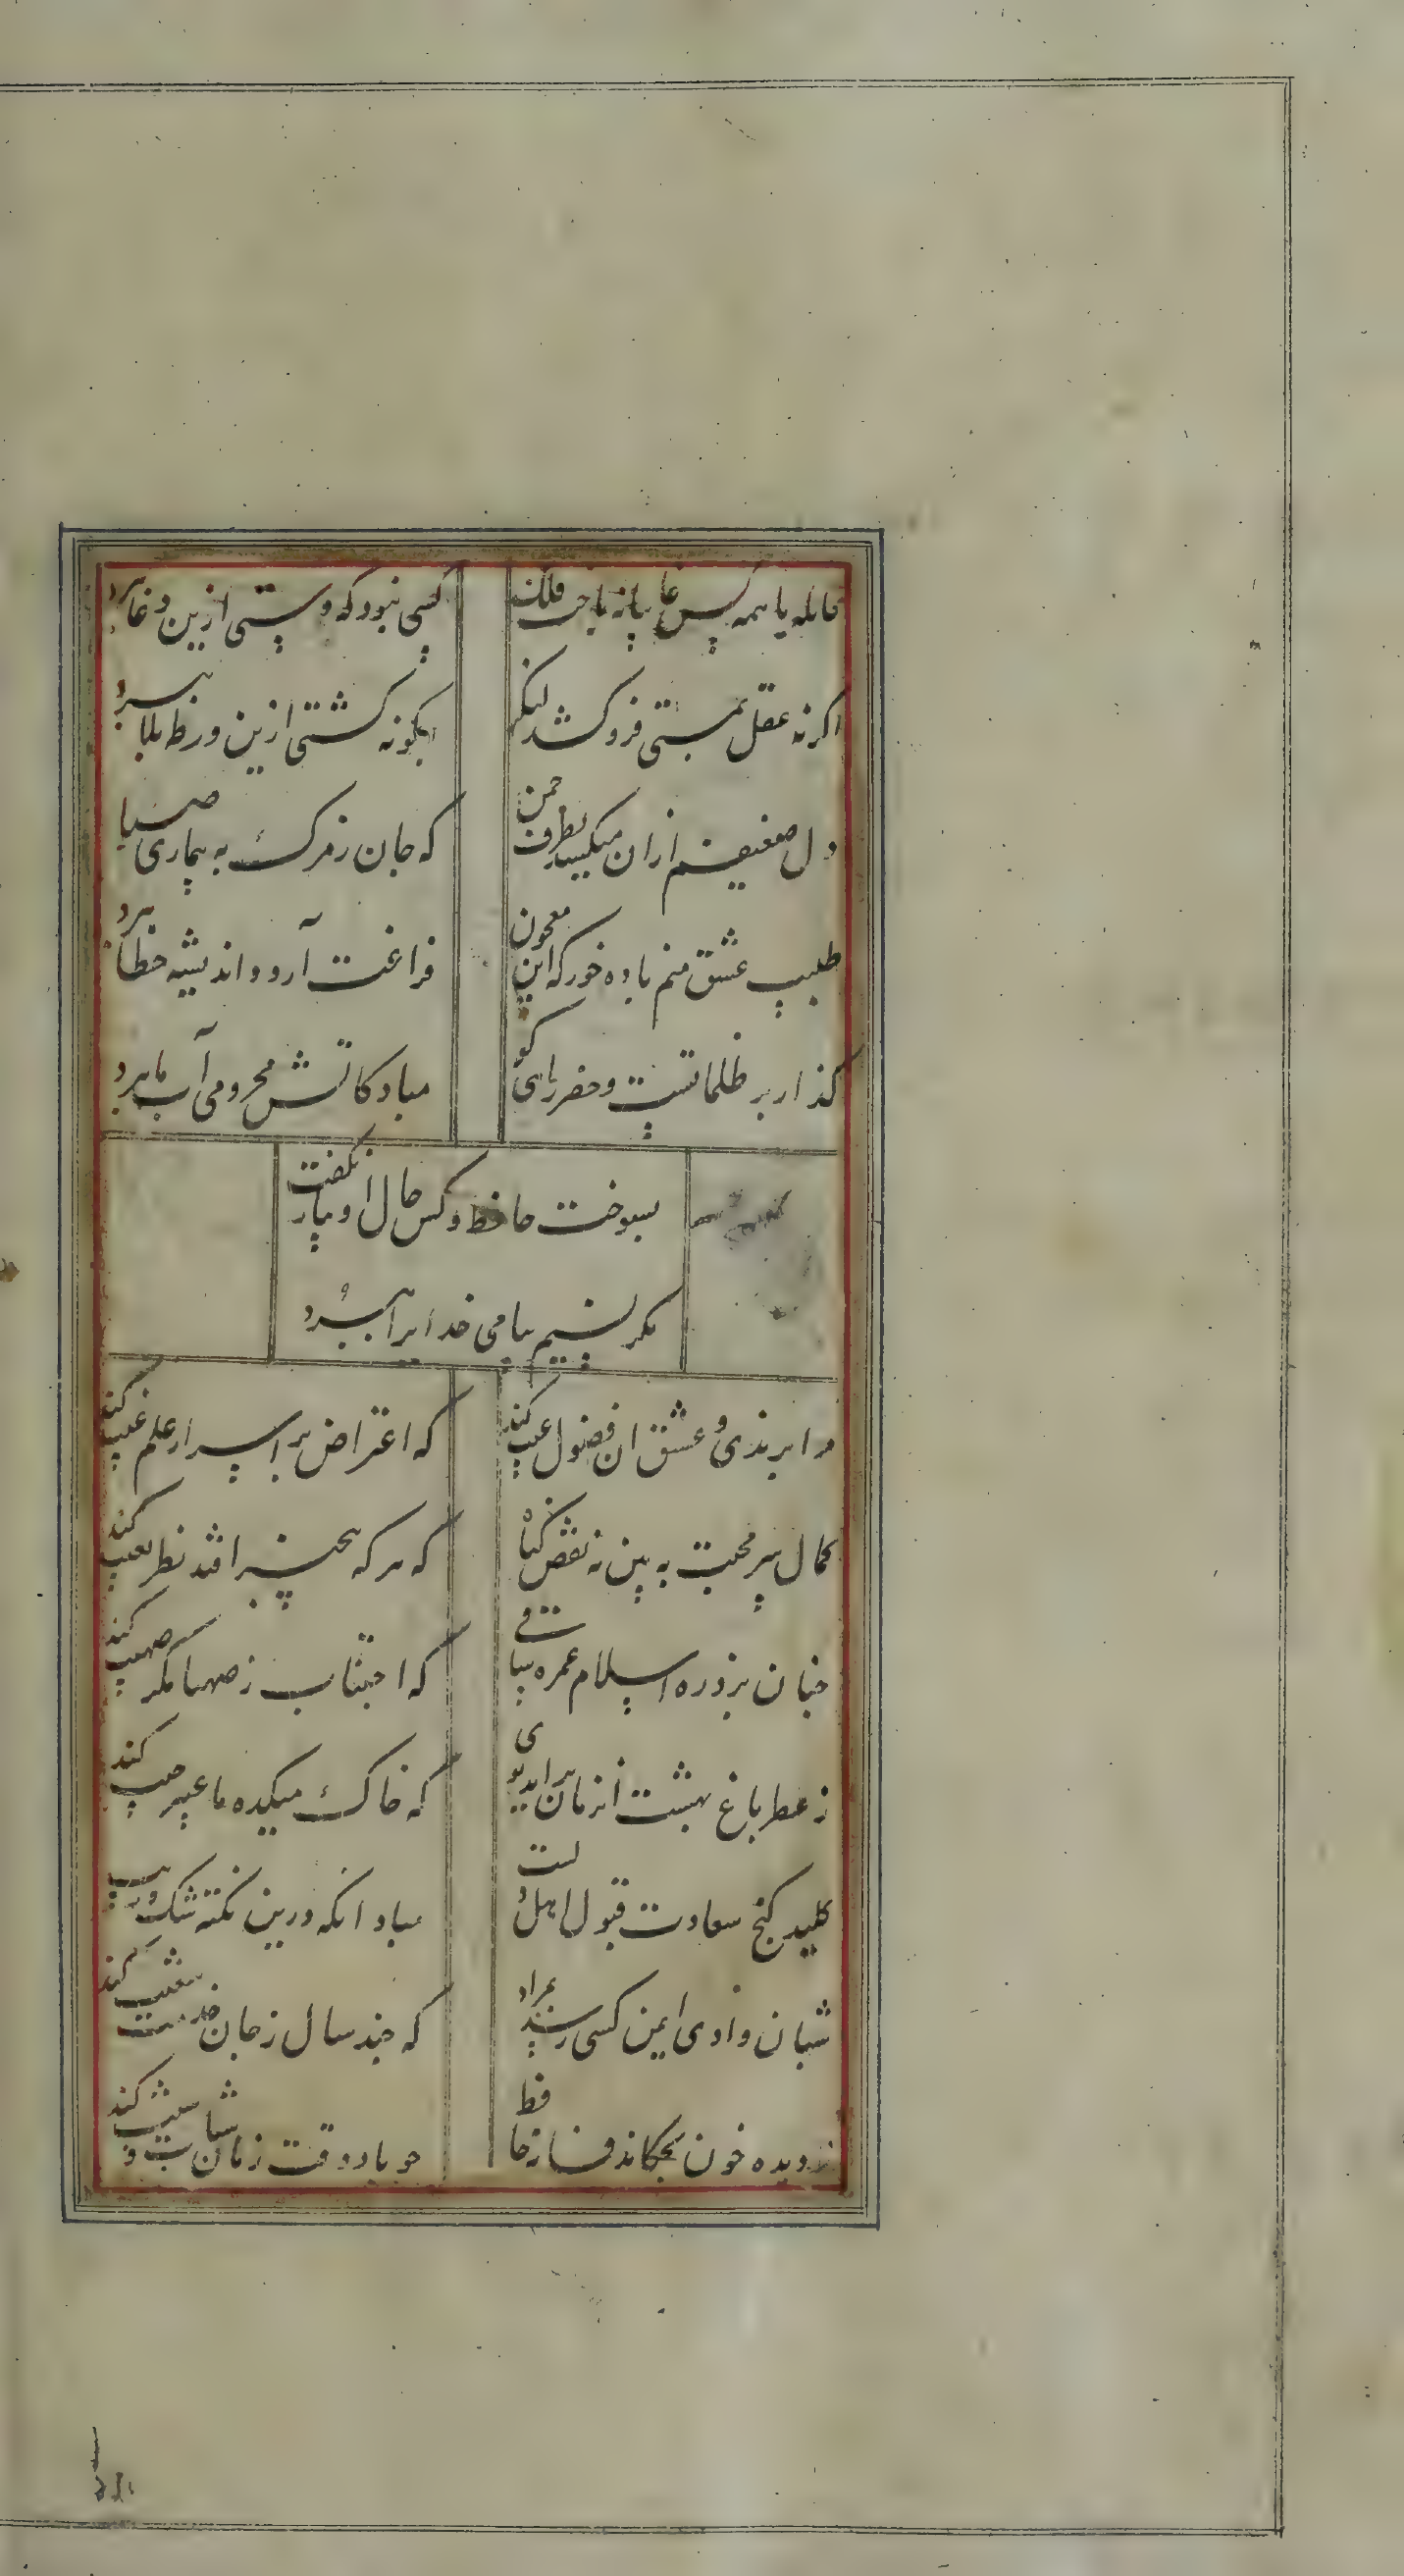 حایله با همه کس غایبانه باخت فلک
کسی نبود که دستی ازین دغا ببرد
اگر نه عقل بمستی فرو کشد لنگر
چگونه کشتی ازین ورطه بلا ببرد
دل ضعیفم ازان میکشد بطرف چمن
که جان ز مرک به بیماری صبا
طبیب عشق منم باده خور که این معجون
فراغت آرد و اندیشه خطا ببرد
گذار بر ظلماتست و خضر راهی کو
مباد کاتش محرومی آب ما ببرد
بسوخت حافظ و کس حال او بیار نگفت
مگر نسیم پیامی خدایرا ببرد
مرا برندی و عشق ان فضول عیب کند
که اعتراض بر اسرار علم غیب کند
کمال سر محبت به بین نه نقص گناه
که هر که بی هنر افتد نظر بعیب کند
چنان بزد ره اسلام غمزه ساقی
که اجتناب ز صهبا مگر صهیب کند
ز عطر باغ بهشت انزمان براید بوی
که خاک میکده ما عبیر جیب کند
کلید کنج سعادت قبول اهل دلست
مباد انکه درین نکته شک و ریب
شبان وادی ایمن کسی رسد بمراد
که چند سال ز جان خدمت شعیب کند
ز دیده خون بچکاند فسانه حافظ
چو یاد وقت زمان شباب و شیب کند